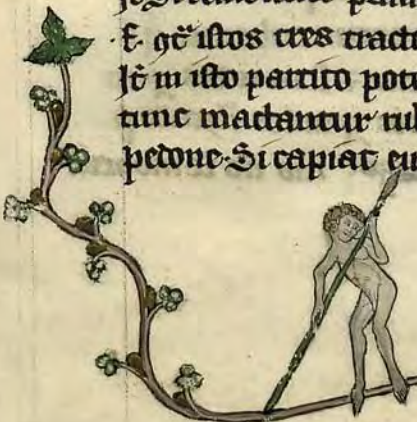 E gr̄ istos tres tract
It̄ in isto partito pot
tunc mactantur rub
pedone. Si capiat eu